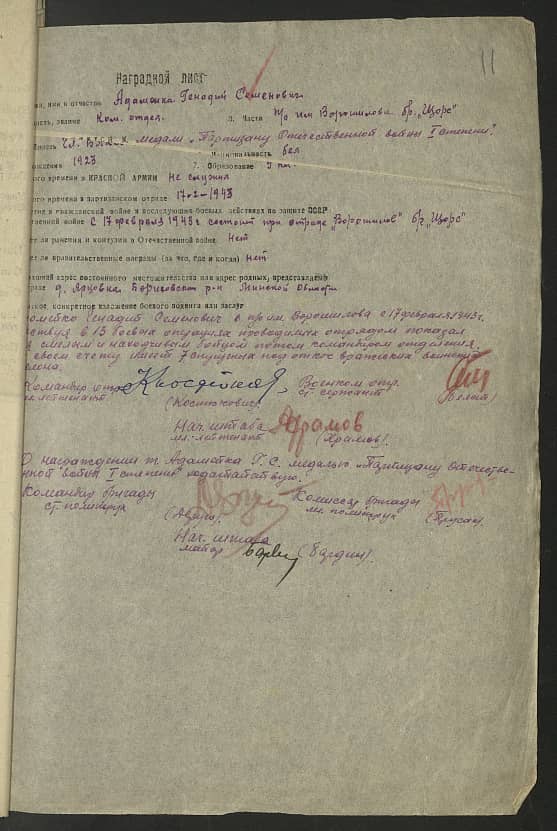 11
Наградной лист
имя и отчество Адаменка Генадий Семенович
звание Ком. отдел. 3. Часть п/о им Ворошилова бр. „Щорс"
медали „Партизану Отечественной войны I степени".
Национальность бел
рождения 1923 7. Образование 7 кл
времени в КРАСНОЙ АРМИИ Не служил
времени в партизанском отряде 17-02-1943
в гражданской войне и последующих боевых действиях на защите СССР
войне С 17 февраля 1943 г состоит при отряде „Ворошилов" бр. „Щорс"
ли ранения и контузии в Отечественной войне Нет
ли правительственные награды (за что, где и когда) нет
адрес постоянного местожительства или адрес родных, представляемого
д. Борисовский р-н Минской Области
конкретное изложение боевого подвига или заслуг
Генадий Семенович в п/о им. Ворошилова с 17 февраля 1943 г.
в 13 боевых операциях проводимых отрядом показал
смелым и находчивым бойцом потом командиром отделения.
своем счету имеет 7 спущенных под откос вражеских
Командир отр. Военком отр.
лейтенант ст. сержант
(Костюкович)
Нач. штаба Храмов
мл. лейтенант (Храмов)
О награждении т. Адаменка Г. С. медалью „Партизану Отечестве-
нной войны I степени" ходатайствую.
Командир бригады Комиссар бригады
ст. политрук мл. политрук
(Трусан)
Нач. штаба
майор (Бардин)